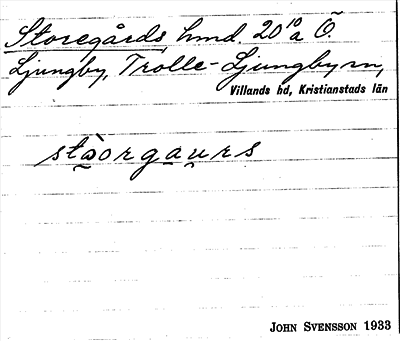 Storegårds hmd. 20¹⁰a Ö.
Ljungby, Trolle-Ljungby sn,
Villands hd, Kristianstads län
stòorgaurs
JOHN SVENSSON 1933